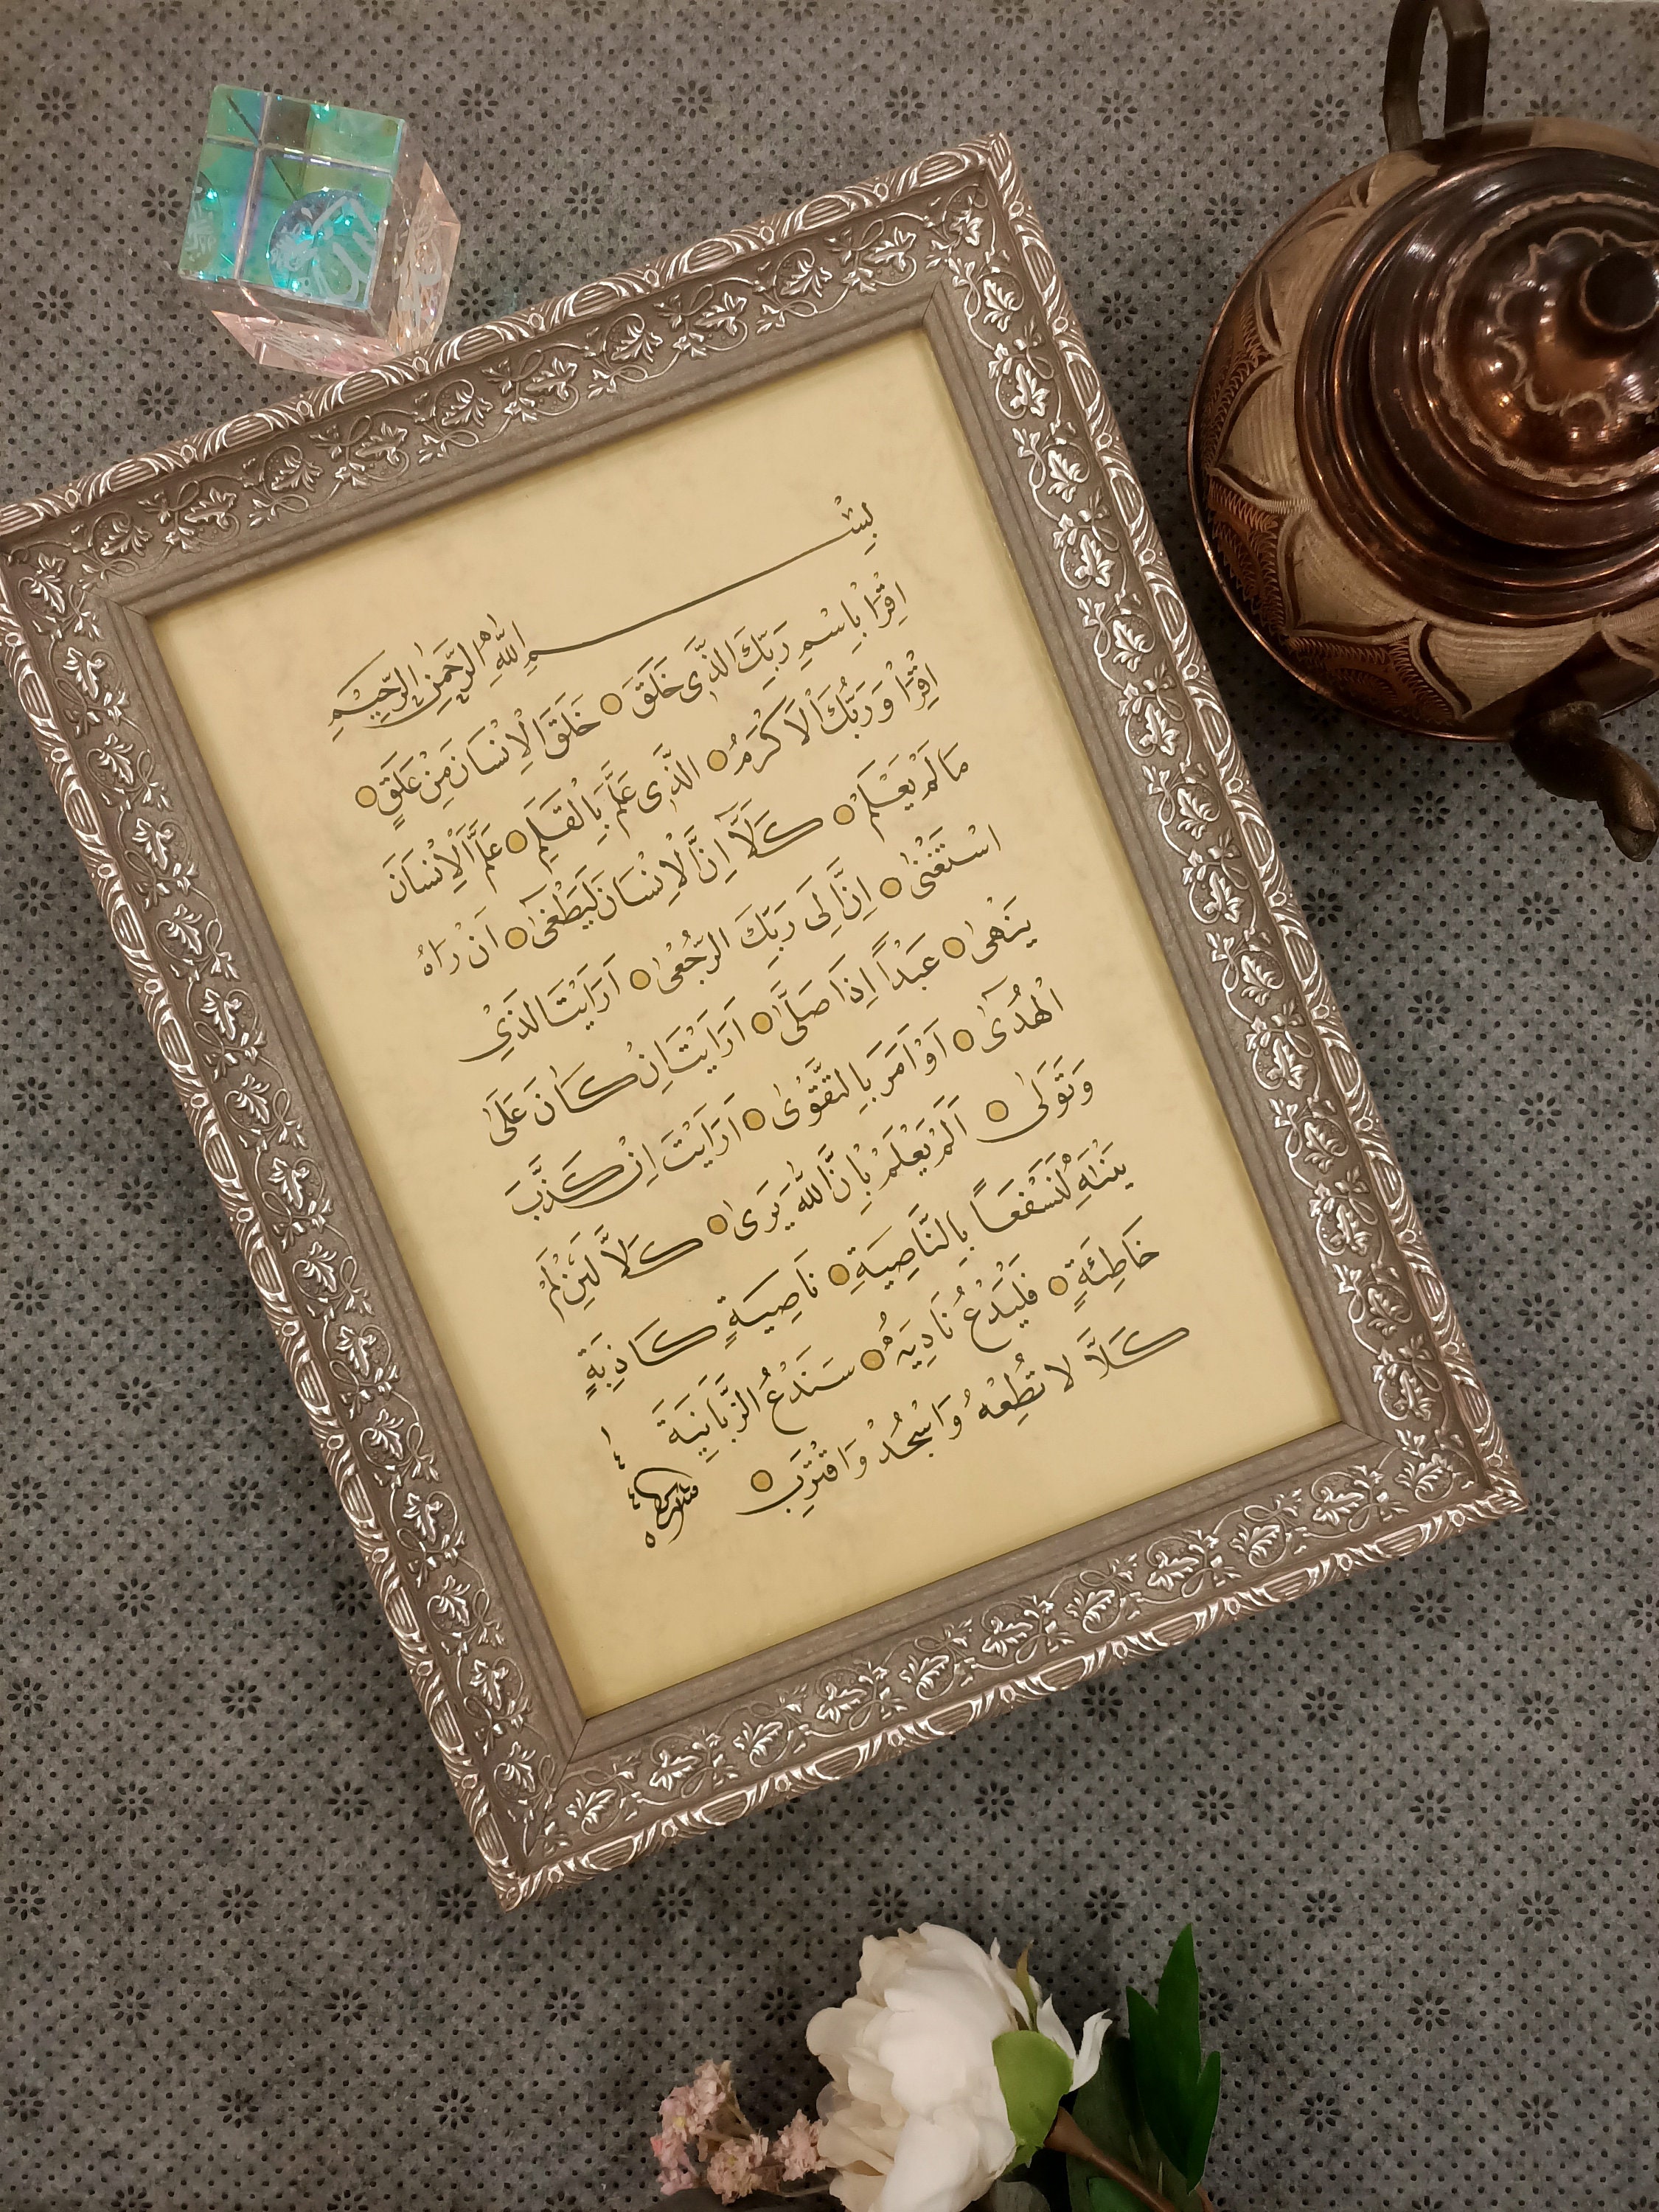 بِسْمِ اللهِ الرَّحْمٰنِ الرَّحِيْمِ
اِقْرَأْ بِاسْمِ رَبِّكَ الَّذٖى خَلَقَ ۝ خَلَقَ الْاِنْسَانَ مِنْ عَلَقٍ ۝
اِقْرَأْ وَ رَبُّكَ الْاَكْرَمُ ۝ الَّذٖى عَلَّمَ بِالْقَلَمِ ۝ عَلَّمَ الْاِنْسَانَ
مَا لَمْ يَعْلَمْ ۝ كَلَّآ اِنَّ الْاِنْسَانَ لَيَطْغٰىٓ ۝ اَنْ رَاٰهُ
اسْتَغْنٰى ۝ اِنَّ اِلٰى رَبِّكَ الرُّجْعٰى ۝ اَرَاَيْتَ الَّذِيْ
يَنْهٰى ۝ عَبْداً اِذَا صَلّٰى ۝ اَرَاَيْتَ اِنْ كَانَ عَلَى
الْهُدٰىٓ ۝ اَوْ اَمَرَ بِالتَّقْوٰى ۝ اَرَاَيْتَ اِنْ كَذَّبَ
وَ تَوَلّٰى ۝ اَلَمْ يَعْلَمْ بِاَنَّ اللهَ يَرٰى ۝ كَلَّا لَئِنْ لَمْ
يَنْتَهِ لَنَسْفَعاً بِالنَّاصِيَةِ ۝ نَاصِيَةٍ كَاذِبَةٍ
خَاطِئَةٍ ۝ فَلْيَدْعُ نَادِيَهُ ۝ سَنَدْعُ الزَّبَانِيَةَ
كَلَّا لَا تُطِعْهُ وَاسْجُدْ وَاقْتَرِبْ ۝